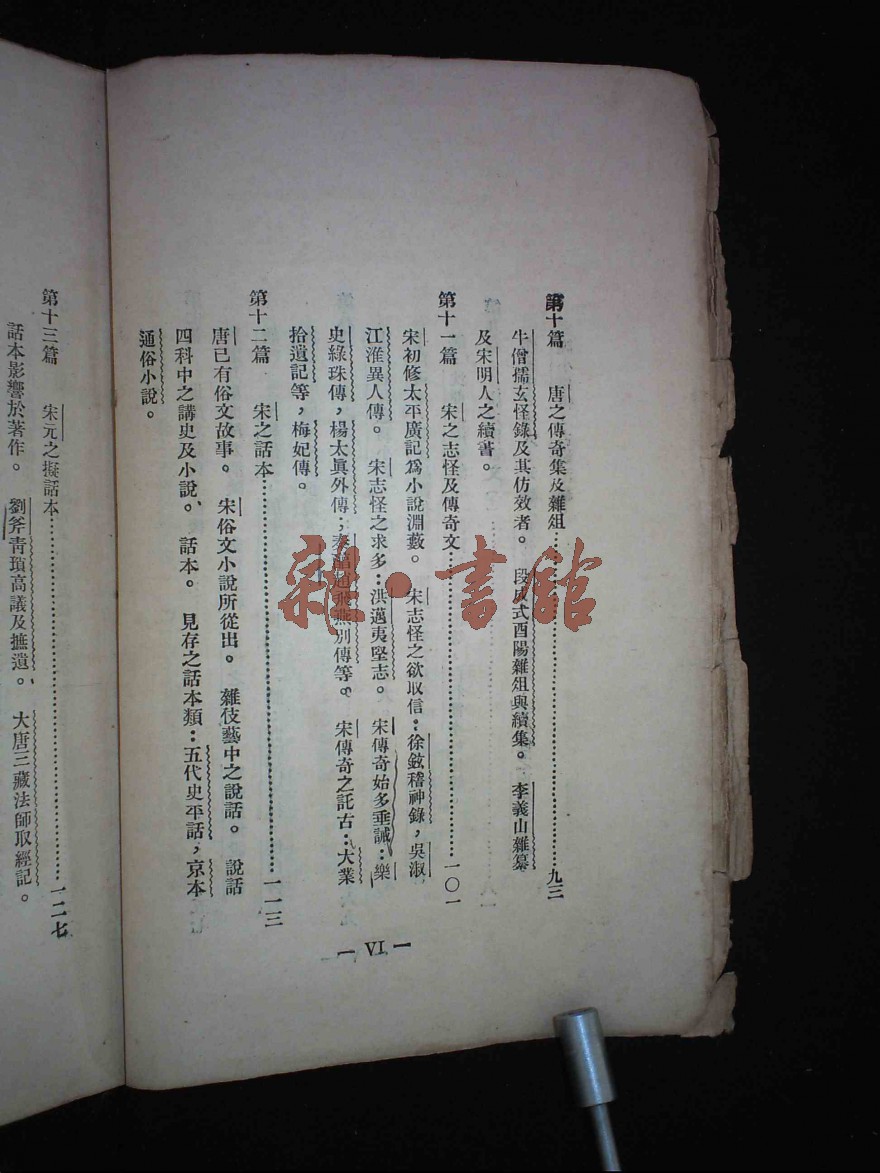 第十篇　唐之傳奇集及雜俎……九三
牛僧孺玄怪錄及其仿效者。　段成式酉陽雜俎與續集。　李義山雜纂
及宋明人之續書。
第十一篇　宋之志怪及傳奇文……一〇一
宋初修太平廣記爲小說淵藪。　宋志怪之欲取信：徐鉉稽神錄，吳淑
江淮異人傳。　宋志怪之求多：洪邁夷堅志。　宋傳奇始多垂誡：樂
史綠珠傳，楊太眞外傳；秦醇趙飛燕別傳等。　宋傳奇之託古：大業
拾遺記等，梅妃傳。
第十二篇　宋之話本……一一三
唐已有俗文故事。　宋俗文小說所從出。　雜伎藝中之說話。　說話
四科中之講史及小說。　話本。　見存之話本類：五代史平話，京本
通俗小說。
— VI —
第十三篇　宋元之擬話本……一二七
話本影響於著作。　劉斧靑瑣高議及摭遺。　大唐三藏法師取經記。
雜·書館